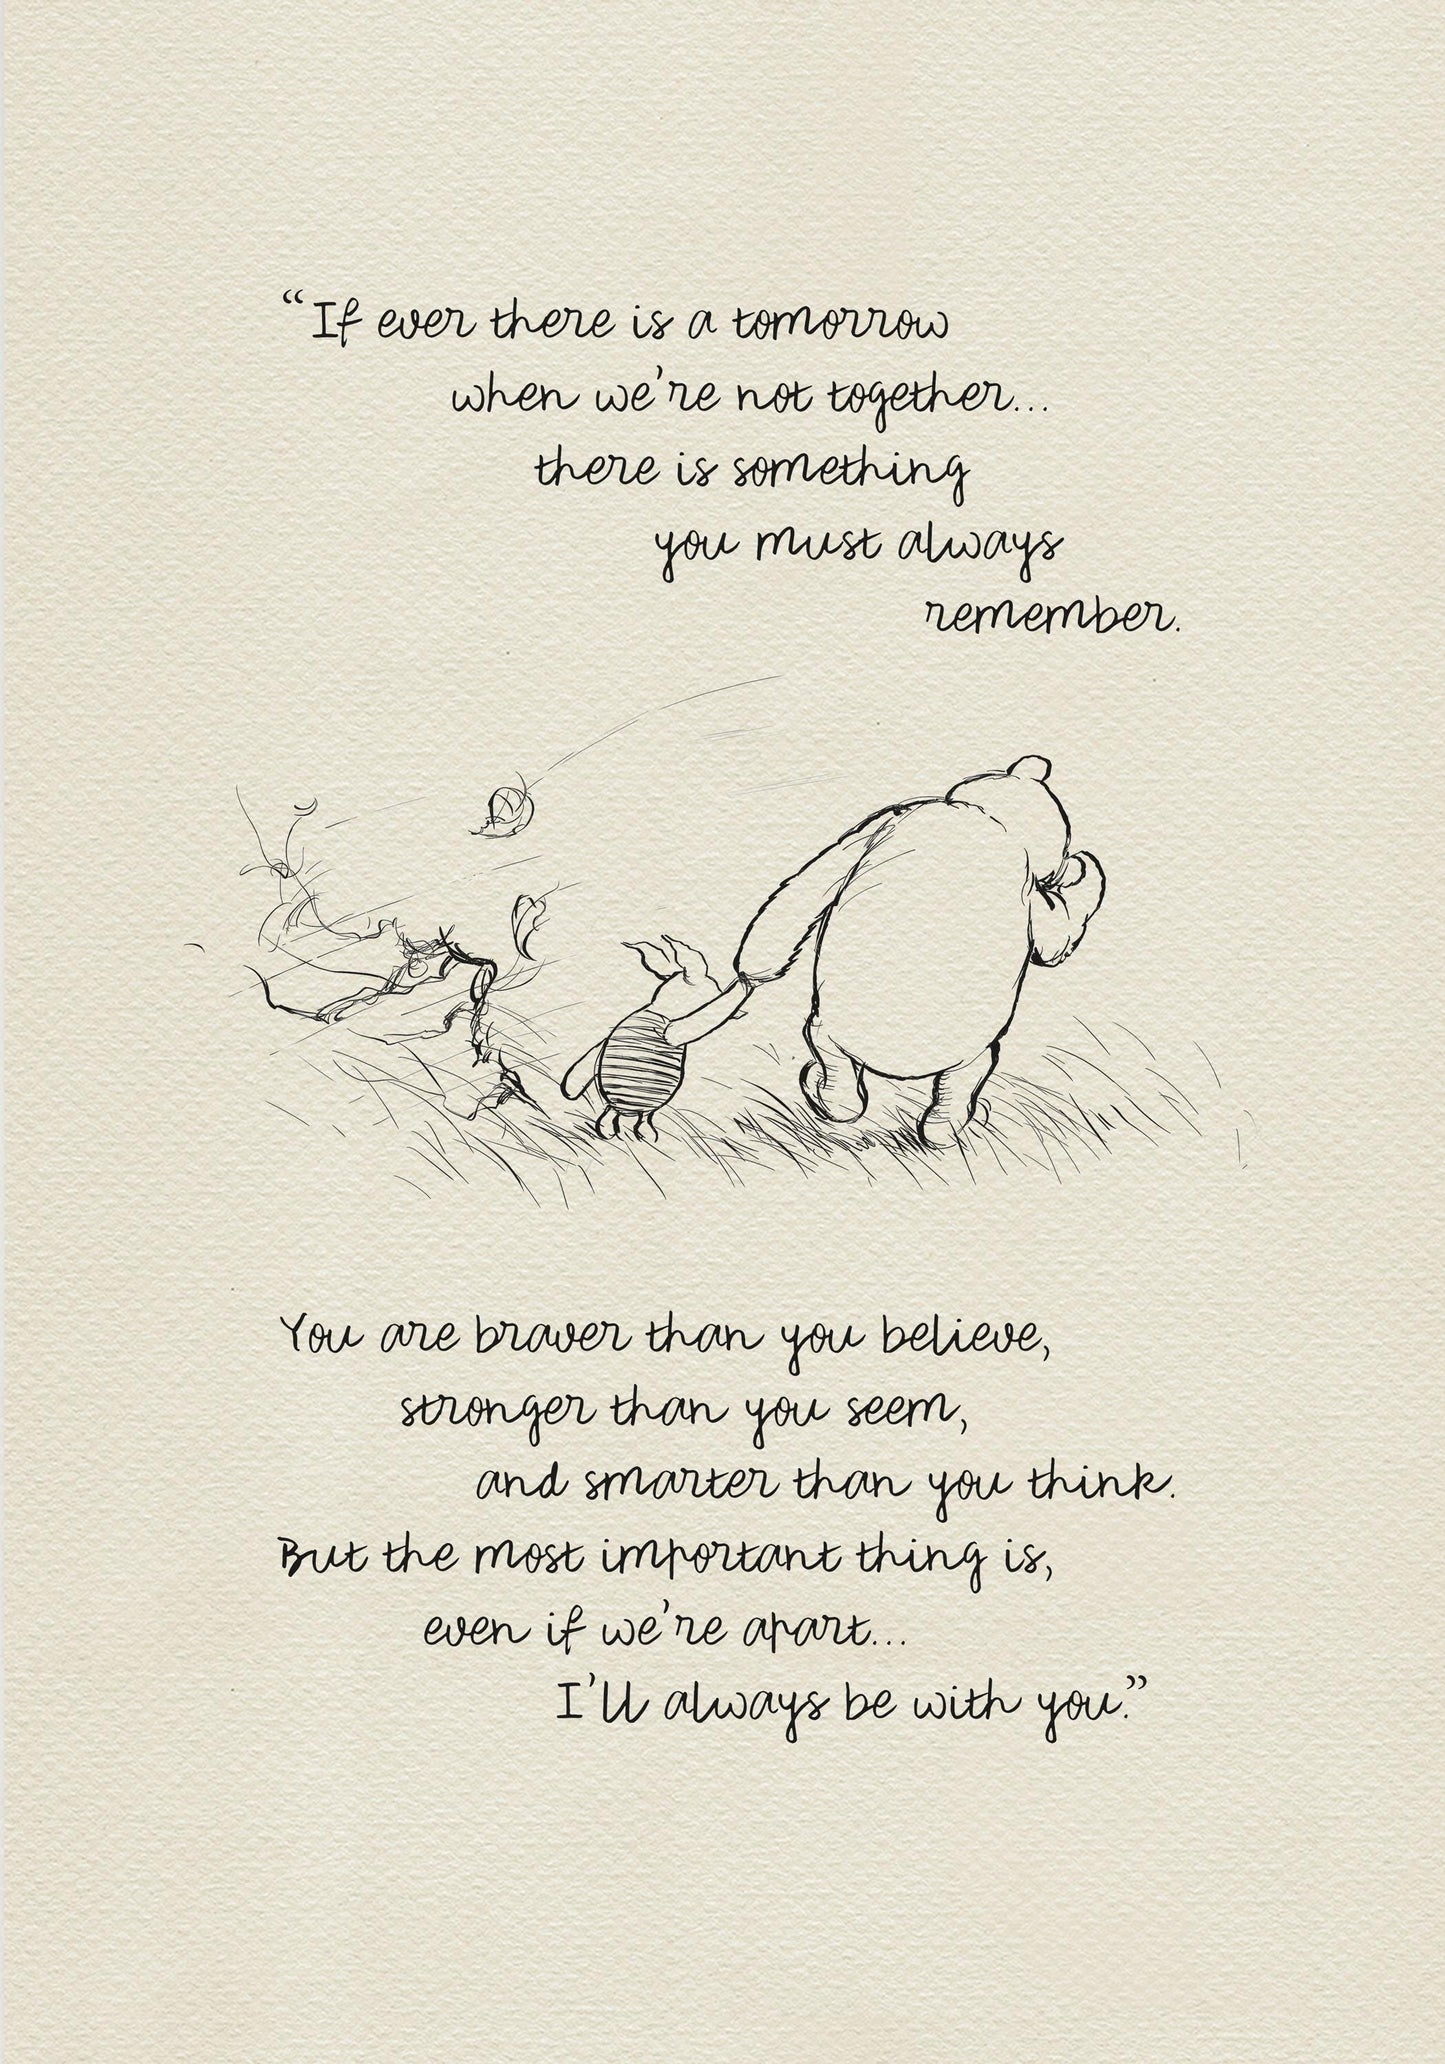 “If ever there is a tomorrow
when we're not together...
there is something
you must always
remember.
You are braver than you believe,
stronger than you seem,
and smarter than you think.
But the most important thing is,
even if we're apart...
I'll always be with you.”